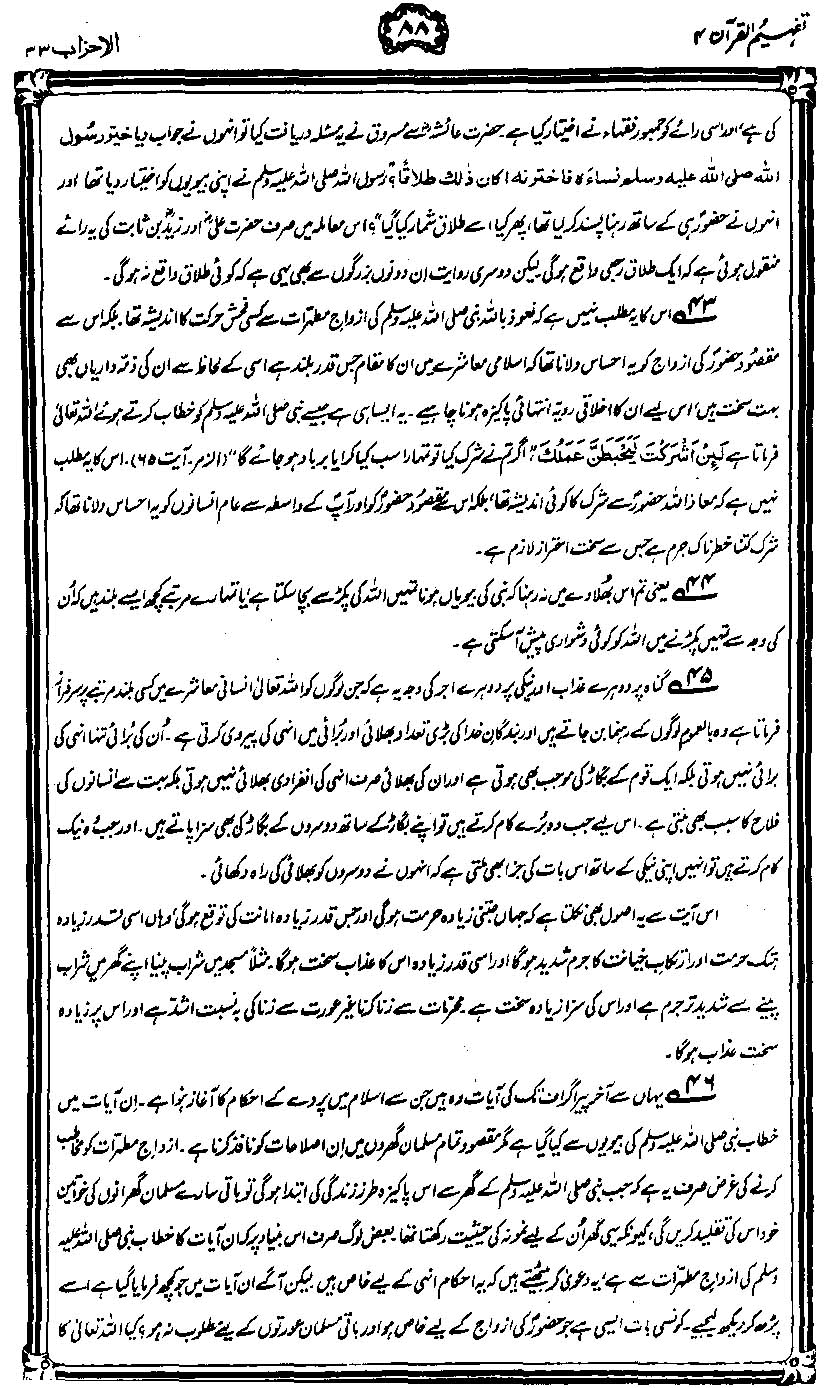 تفہیم القرآن ۴
۸۸
الاحزاب ۳۳
کی ہے، اور اسی رائے کو جمہور فقہاء نے اختیار کیا ہے۔ حضرت عائشہؓ سے مسروق نے یہ مسئلہ دریافت کیا تو انہوں نے جواب دیا خیّر رسُول
اللہ صلی اللہ علیہ وسلم نساءَہ فاخترنہ اکان ذٰلک طلاقًا؟ رسول اللہ صلی اللہ علیہ وسلم نے اپنی بیویوں کو اختیار دیا تھا اور
انہوں نے حضورؐ ہی کے ساتھ رہنا پسند کر لیا تھا، پھر کیا اسے طلاق شمار کیا گیا"؟ اس معاملہ میں صرف حضرت علیؓ اور زیدؓ بن ثابت کی یہ رائے
منقول ہوئی ہے کہ ایک طلاق رجعی واقع ہوگی لیکن دوسری روایت ان دونوں بزرگوں سے بھی یہی ہے کہ کوئی طلاق واقع نہ ہوگی۔
۴۳ اس کا یہ مطلب نہیں ہے کہ نعوذ باللہ نبی صلی اللہ علیہ وسلم کی ازواجِ مطہرات سے کسی فحش حرکت کا اندیشہ تھا۔ بلکہ اس سے
مقصُود حضورؐ کی ازواج کو یہ احساس دلانا تھا کہ اسلامی معاشرے میں ان کا مقام جس قدر بلند ہے اسی کے لحاظ سے ان کی ذمہ داریاں بھی
بہت سخت ہیں، اس لیے ان کا اخلاقی رویہ انتہائی پاکیزہ ہونا چاہیے۔ یہ ایسا ہی ہے جیسے نبی صلی اللہ علیہ وسلم کو خطاب کرتے ہوئے اللہ تعالیٰ
فرماتا ہے لَئِنْ اَشْرَکْتَ لَیَحْبَطَنَّ عَمَلُکَ "اگر تم نے شرک کیا تو تمہارا سب کیا کرایا برباد ہو جائے گا" (الزمر۔ آیت ۶۵)۔ اس کا یہ مطلب
نہیں ہے کہ معاذ اللہ حضورؐ سے شرک کا کوئی اندیشہ تھا، بلکہ اس سے مقصُود حضورؐ کو اور آپؐ کے واسطہ سے عام انسانوں کو یہ احساس دلانا تھا کہ
شرک کتنا خطرناک جرم ہے جس سے سخت احتراز لازم ہے۔
۴۴ یعنی تم اس بھُلاوے میں نہ رہنا کہ نبی کی بیویاں ہونا تمہیں اللہ کی پکڑ سے بچا سکتا ہے، یا تمہارے مرتبے کچھ ایسے بلند ہیں کہ اُن
کی وجہ سے تمہیں پکڑنے میں اللہ کو کوئی دشواری پیش آ سکتی ہے۔
۴۵ گناہ پر دوہرے عذاب اور نیکی پر دوہرے اجر کی وجہ یہ ہے کہ جن لوگوں کو اللہ تعالیٰ انسانی معاشرے میں کسی بلند مرتبے پر سرفراز
فرماتا ہے وہ بالعموم لوگوں کے رہنما بن جاتے ہیں اور بندگانِ خدا کی بڑی تعداد بھلائی اور بُرائی میں انہی کی پیروی کرتی ہے۔ اُن کی بُرائی تنہا انہی کی
برائی نہیں ہوتی بلکہ ایک قوم کے بگاڑ کی موجب بھی ہوتی ہے اور ان کی بھلائی صرف انہی کی انفرادی بھلائی نہیں ہوتی بلکہ بہت سے انسانوں کی
فلاح کا سبب بھی بنتی ہے۔ اس لیے جب وہ بُرے کام کرتے ہیں تو اپنے بگاڑ کے ساتھ دوسروں کے بگاڑ کی بھی سزا پاتے ہیں۔ اور جب وہ نیک
کام کرتے ہیں تو انہیں اپنی نیکی کے ساتھ اس بات کی جزا بھی ملتی ہے کہ انہوں نے دوسروں کو بھلائی کی راہ دکھائی۔
اس آیت سے یہ اصول بھی نکلتا ہے کہ جہاں جتنی زیادہ حرمت ہوگی اور جس قدر زیادہ امانت کی توقع ہوگی، وہاں اسی قدر زیادہ
ہتک حرمت اور ارتکابِ خیانت کا جرم شدید ہوگا اور اسی قدر زیادہ اس کا عذاب سخت ہوگا۔ مثلاً مسجد میں شراب پینا اپنے گھر میں شراب
پینے سے شدید تر جرم ہے اور اس کی سزا زیادہ سخت ہے۔ محرمات سے زنا کرنا غیر عورت سے زنا کی بہ نسبت اشدّ ہے اور اس پر زیادہ
سخت عذاب ہوگا۔
۴۶ یہاں سے آخر پیراگراف تک کی آیات وہ ہیں جن سے اسلام میں پردے کے احکام کا آغاز ہوا ہے۔ اِن آیات میں
خطاب نبی صلی اللہ علیہ وسلم کی بیویوں سے کیا گیا ہے مگر مقصود تمام مسلمان گھروں میں اِن اصلاحات کو نافذ کرنا ہے۔ ازواجِ مطہرات کو مخاطب
کرنے کی غرض صرف یہ ہے کہ جب نبی صلی اللہ علیہ وسلم کے گھر سے اس پاکیزہ طرزِ زندگی کی ابتدا ہوگی تو باقی سارے مسلمان گھرانوں کی خواتین
خود اس کی تقلید کریں گی، کیونکہ یہی گھر اُن کے لیے نمونہ کی حیثیت رکھتا تھا۔ بعض لوگ صرف اس بنیاد پر کہ ان آیات کا خطاب نبی صلی اللہ علیہ
وسلم کی ازواجِ مطہرات سے ہے، یہ دعویٰ کر بیٹھتے ہیں کہ یہ احکام انہی کے لیے خاص ہیں۔ لیکن آگے ان آیات میں جو کچھ فرمایا گیا ہے اسے
پڑھ کر دیکھ لیجیے۔ کونسی بات ایسی ہے جو حضورؐ کی ازواج کے لیے خاص ہو اور باقی مسلمان عورتوں کے لیے مطلوب نہ ہو؟ کیا اللہ تعالیٰ کا